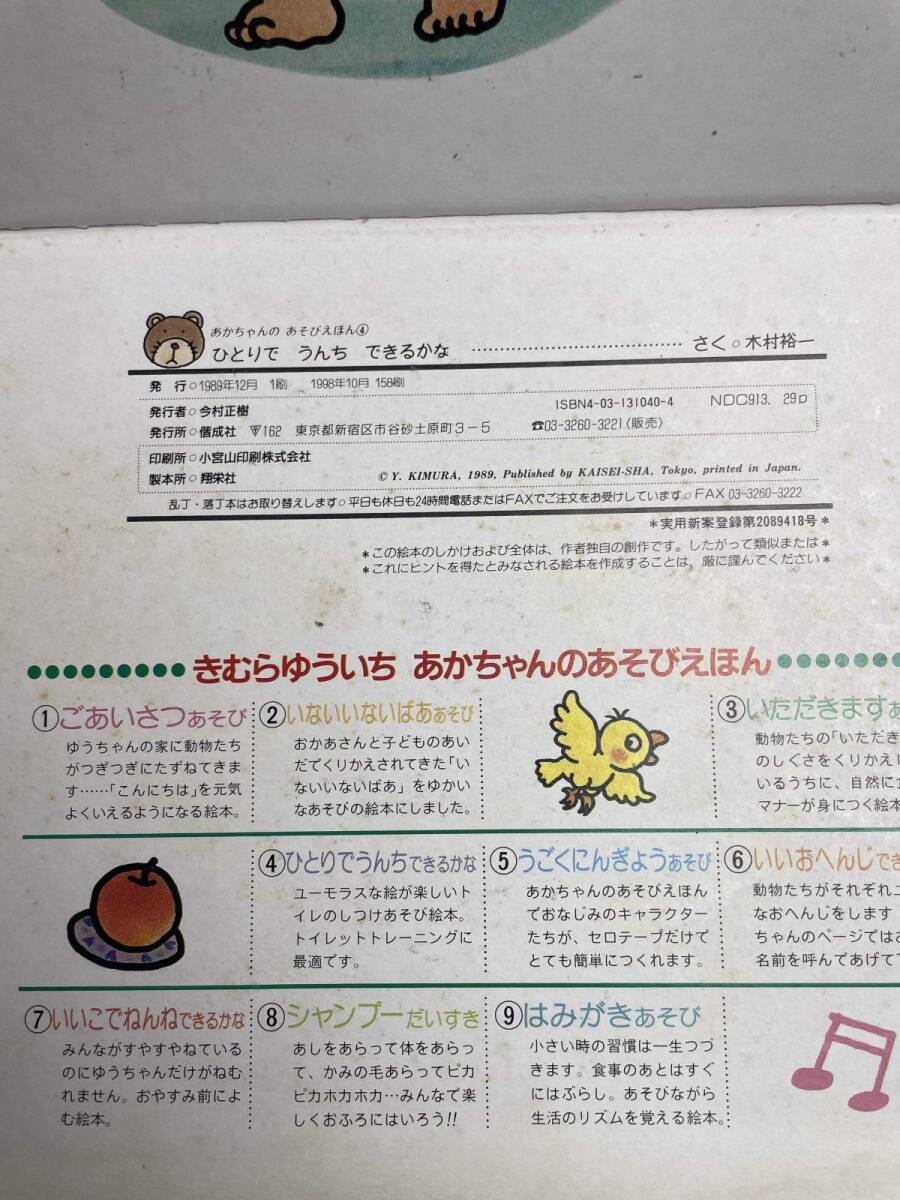 あかちゃんの あそびえほん④
ひとりで うんち できるかな ……………………………… さく○木村裕一
発 行○1989年12月 1刷 1998年10月 158刷
発行者○今村正樹
ISBN4-03-131040-4 NDC913. 29p
発行所○偕成社 〒162 東京都新宿区市谷砂土原町3-5 ☎03-3260-3221〈販売〉
印刷所○小宮山印刷株式会社
製本所○翔栄社
© Y. KIMURA, 1989, Published by KAISEI-SHA, Tokyo, printed in Japan.
乱丁・落丁本はお取り替えします○平日も休日も24時間電話またはFAXでご注文をお受けしています○FAX 03-3260-3222
*実用新案登録第2089418号*
*この絵本のしかけおよび全体は、作者独自の創作です。したがって類似または*
*これにヒントを得たとみなされる絵本を作成することは、厳に謹んでください*
きむらゆういち あかちゃんのあそびえほん
①ごあいさつあそび
ゆうちゃんの家に動物たち
がつぎつぎにたずねてきま
す……「こんにちは」を元気
よくいえるようになる絵本。
②いないいないばああそび
おかあさんと子どものあい
だでくりかえされてきた「い
ないいないばあ」をゆかい
なあそびの絵本にしました。
③いただきますあ
動物たちの「いただき
のしぐさをくりかえし
いるうちに、自然に食
マナーが身につく絵本
④ひとりでうんちできるかな
ユーモラスな絵が楽しいト
イレのしつけあそび絵本。
トイレットトレーニングに
最適です。
⑤うごくにんぎょうあそび
あかちゃんのあそびえほん
でおなじみのキャラクター
たちが、セロテープだけで
とても簡単につくれます。
⑥いいおへんじでき
動物たちがそれぞれユ
なおへんじをします
ちゃんのページではお
名前を呼んであげて
⑦いいこでねんねできるかな
みんながすやすやねている
のにゆうちゃんだけがねむ
れません。おやすみ前によ
む絵本。
⑧シャンプーだいすき
あしをあらって体をあらっ
て、かみの毛あらってピカ
ピカホカホカ…みんなで楽
しくおふろにはいろう!!
⑨はみがきあそび
小さい時の習慣は一生つづ
きます。食事のあとはすぐ
にはぶらし。あそびながら
生活のリズムを覚える絵本。